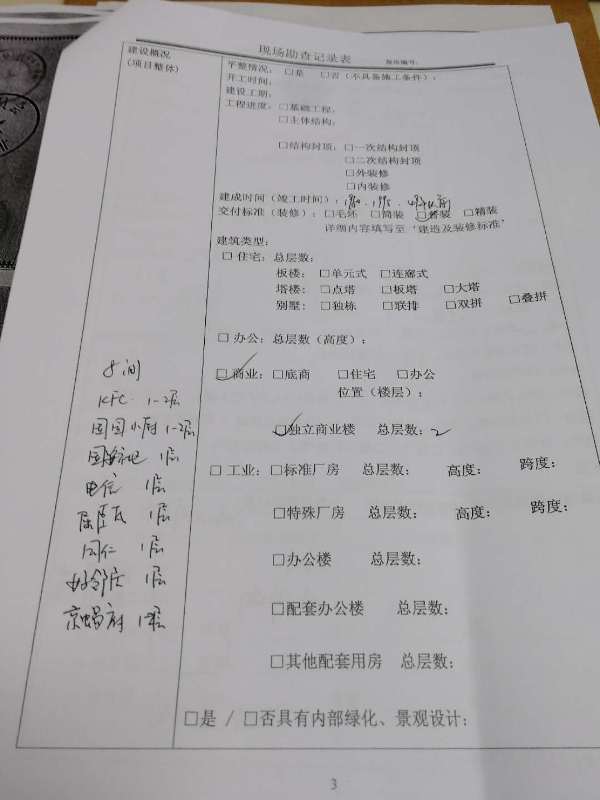 现场勘查记录表
报告编号:
建设概况
(项目整体)
平整情况: □是 □否(不具备施工条件):
开工时间:
建设工期:
工程进度: □基础工程:
□主体结构:
□结构封顶: □一次结构封顶
□二次结构封顶
□外装修
□内装修
建成时间(竣工时间): 1980、1995、
交付标准(装修): □毛坯 □简装 □普装 □精装
详细内容填写至“建造及装修标准”
建筑类型:
□住宅: 总层数:
板楼: □单元式 □连廊式
塔楼: □点塔 □板塔 □大塔
别墅: □独栋 □联排 □双拼 □叠拼
□办公: 总层数(高度):
□商业: □底商 □住宅 □办公
位置(楼层):
□独立商业楼 总层数: 2
□工业: □标准厂房 总层数: 高度: 跨度:
□特殊厂房 总层数: 高度: 跨度:
□办公楼 总层数:
□配套办公楼 总层数:
□其他配套用房 总层数:
□是 / □否具有内部绿化、景观设计:
8间
KFC 1-2层
国国小厨 1-2层
1层
电信 1层
屈臣氏 1层
同仁 1层
好邻居 1层
京蜗府
3